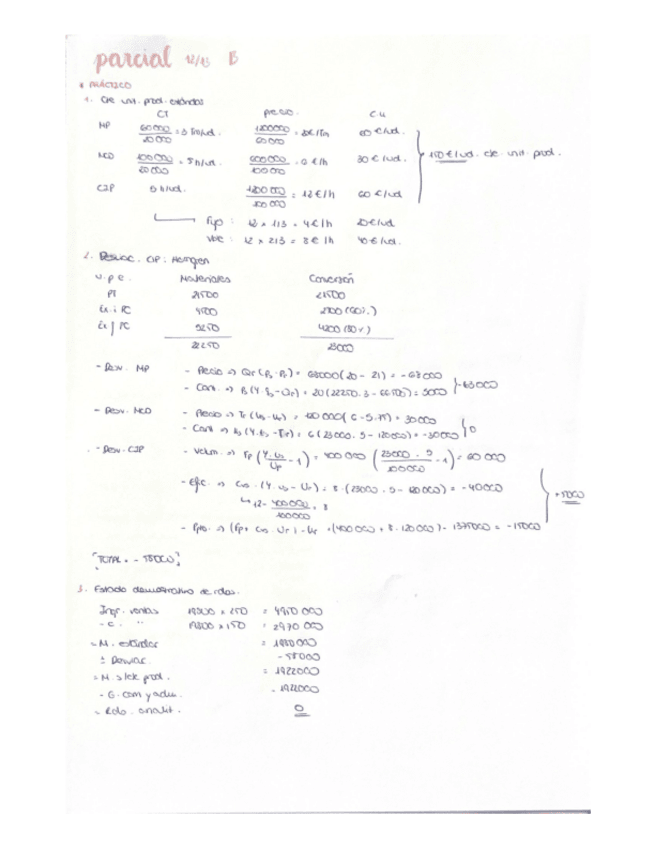 parcial 12/13 B
* PRÁCTICO
1. Cte unit. prod. estándar
CT precio. C.U
MP 60000/20000 = 3 Tm/ud. 1200000/60000 = 20€/Tm 60 €/ud.
MCD 100000/20000 = 5h/ud. 600000/100000 = 6 €/h 30 €/ud. 150€/ud. cte unit prod.
CIP 5 h/ud. 1200000/100000 = 12€/h 60 €/ud
Fijo : 12 x 1/3 = 4€/h 20€/ud
Vble : 12 x 2/3 = 8€/h 40 €/ud.
2. Desviac. CIP: Homogen
u.p.e. Materiales Conversión
PT 21500 21500
Ex. i PC
Ex f PC 5250 4200 (80%)
22250 23000
- Desv. MP - Precio => Qr (Ps - Pr) = 68000 (20 - 21) = -68000
- Cant. => Ps (Y. - Ur) = 20 (22250 . 3 - 66500) = 5000 -63000
- Desv. MCD - Precio => Tr = 120000 (6 - 5.75) = 30000
- Cant => (Y. ts - Tr) = 6 (23000 . 5 - 120000) = -30000 0
- Desv. CIP - Volum. => Fp (Y. us/Up - 1) = 400000 (23000 . 5/100000 - 1) = 60000
- Efic. => Cus . (Y. us - Ur) = 8 . (23000 . 5 - 120000) = -40000
12 - 400000/100000 = 8 +5000
- Ppto. => (Fp + Cus . Ur) - = (400000 + 8 . 120000) - 1375000 = -15000
[TOTAL = - 58000]
3. Estado demostrativo de rdos.
Ingr. ventas 19800 x 250 = 4950 000
- C. " 19800 x 150 = 2970 000
= M. estándar = 1980000
± Desviac. -58000
= M. s/cte prod. = 1922000
- G. com y adm. - 1922000
= Rdo. analít. 0